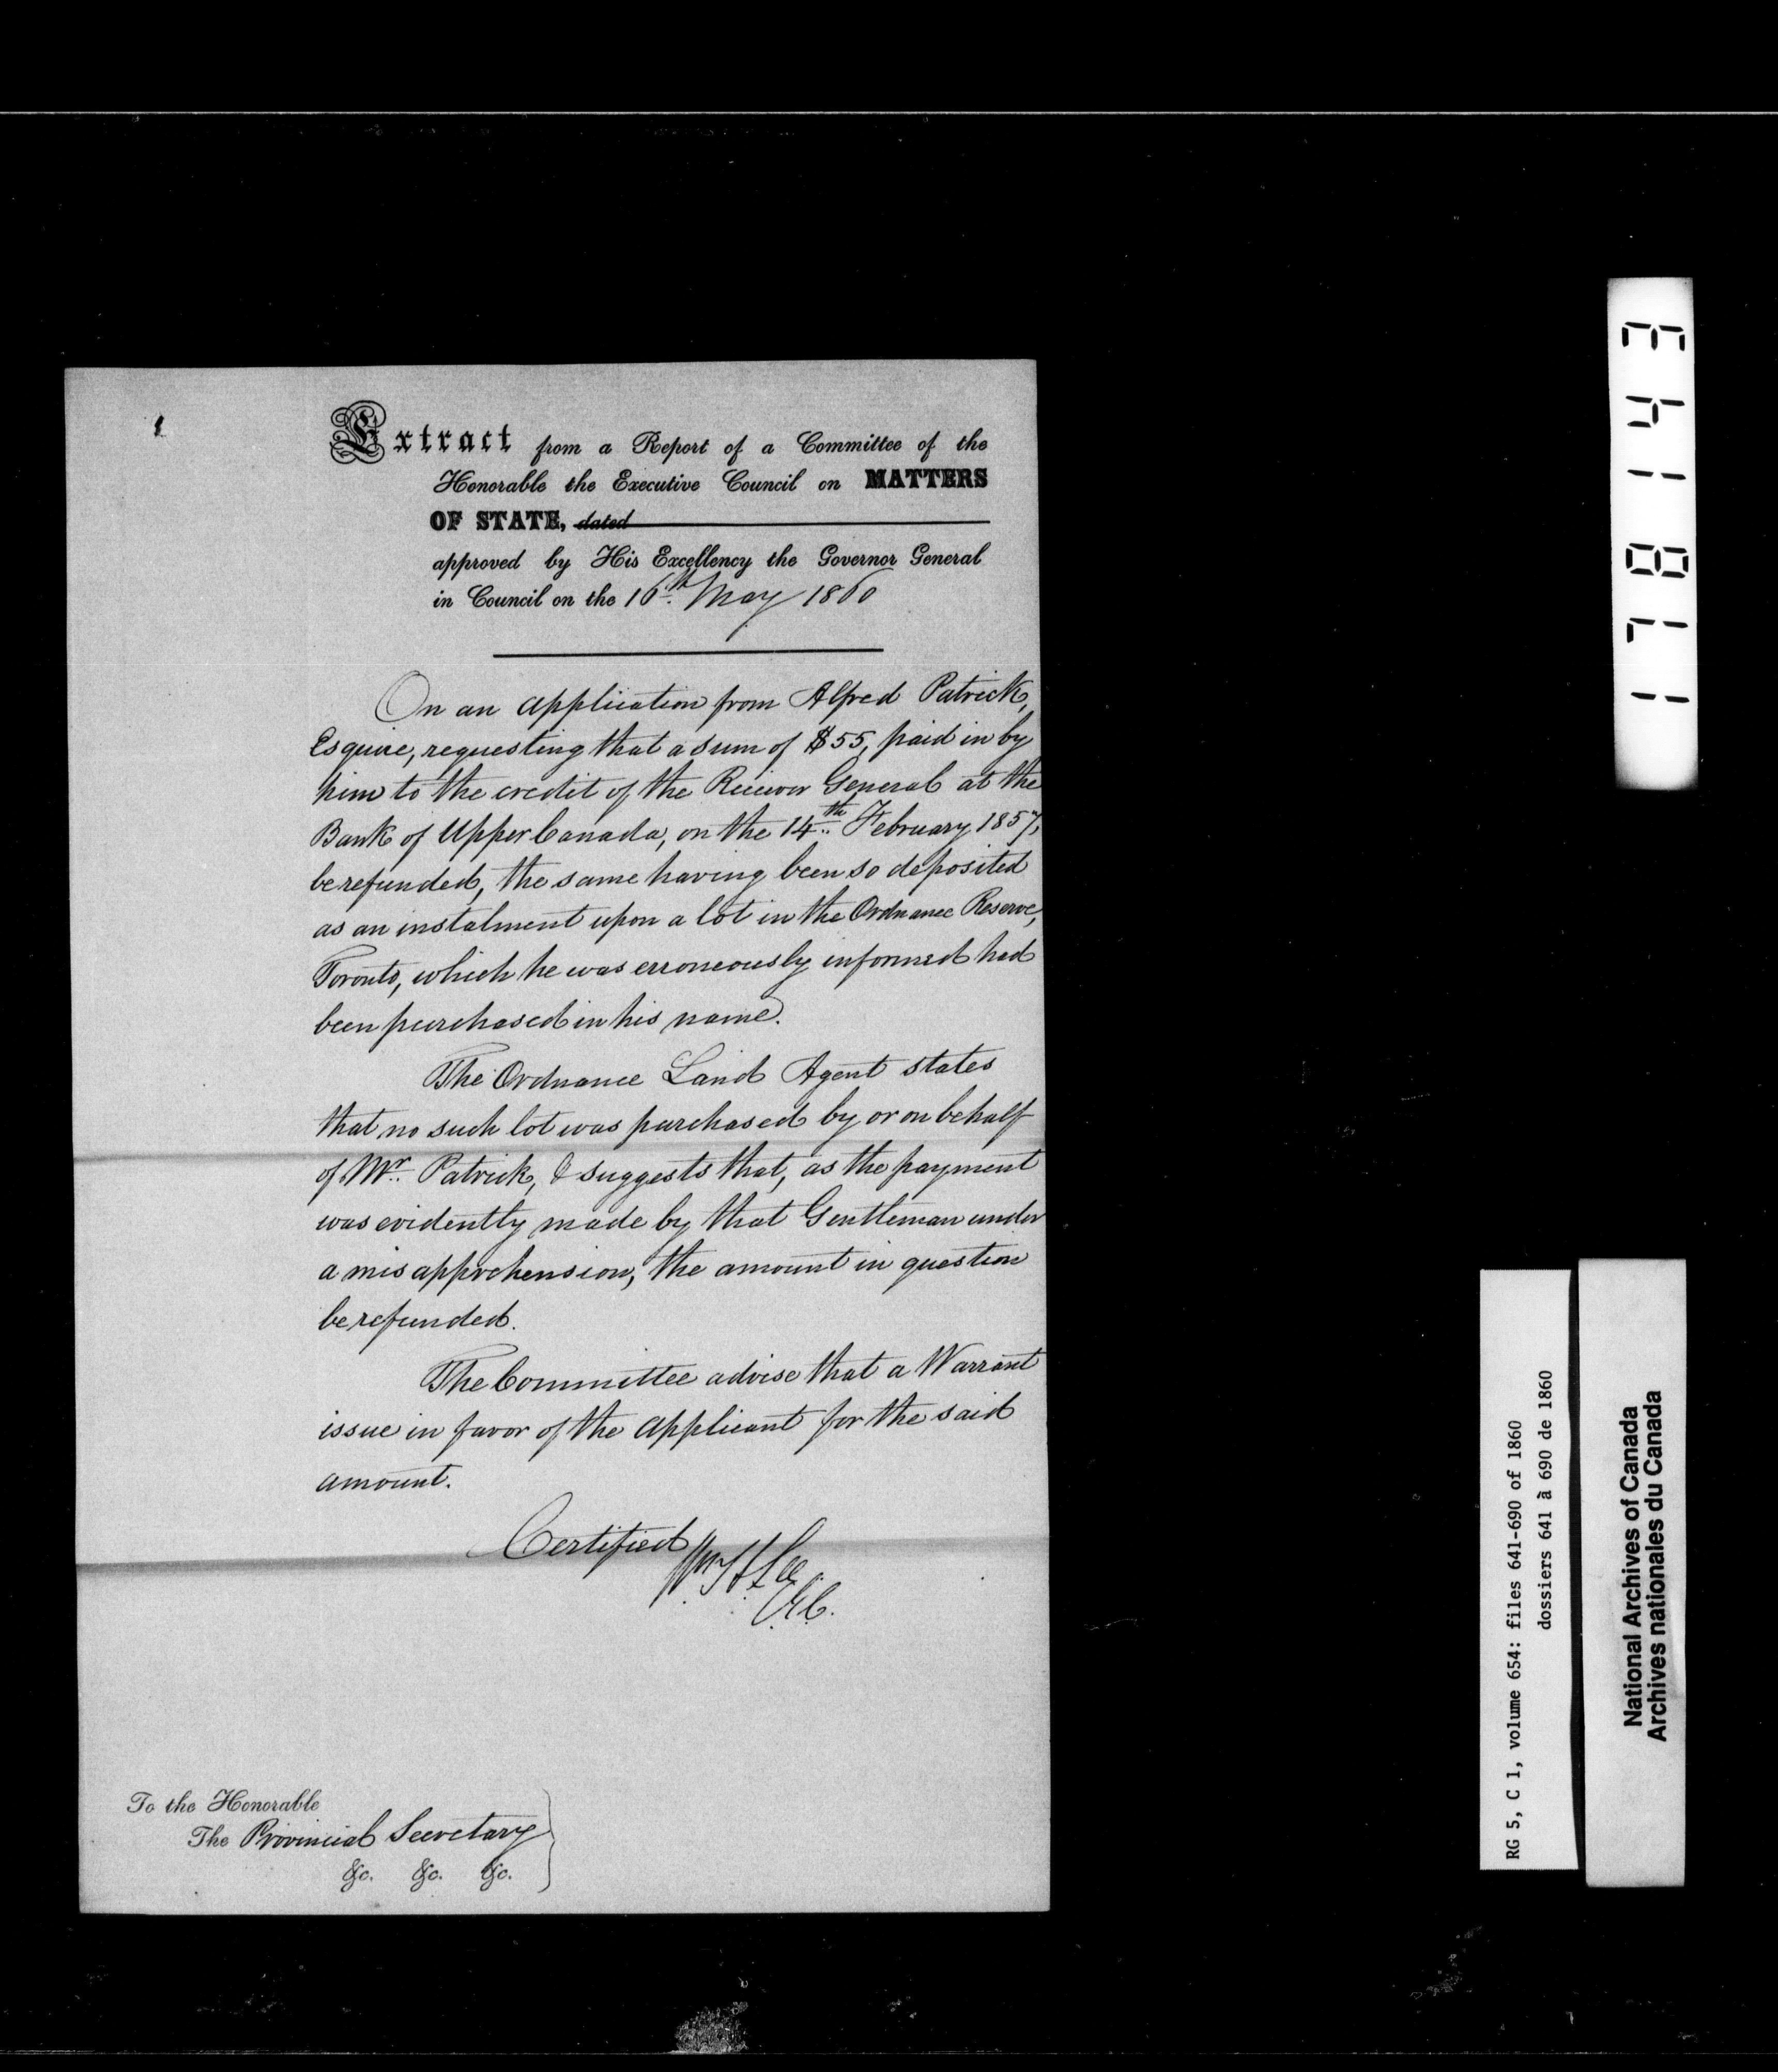 Extract from a Report of a Committee of the
Honorable the Executive Council on MATTERS
OF STATE, dated
approved by His Excellency the Governor General
in Council on the 16th May 1860
On an application from Alfred Patrick,
Esquire, requesting that a sum of $55, paid in by
him to the credit of the Receiver General at the
Bank of Upper Canada, on the 14th February 1857,
be refunded, the same having been so deposited
as an instalment upon a lot in the Ordnance Reserve,
Toronto, which he was erroneously informed had
been purchased in his name.
The Ordnance Land Agent states
that no such lot was purchased by or on behalf
of Mr. Patrick, & suggests that, as the payment
was evidently made by that Gentleman under
a misapprehension, the amount in question
be refunded.
The Committee advise that a Warrant
issue in favor of the applicant for the said
amount.
Certified
Wm H Lee
C.E.C.
To the Honorable
The Provincial Secretary
&c. &c. &c.
171814E
RG 5, C 1, volume 654: files 641-690 of 1860
dossiers 641 à 690 de 1860
National Archives of Canada
Archives nationales du Canada